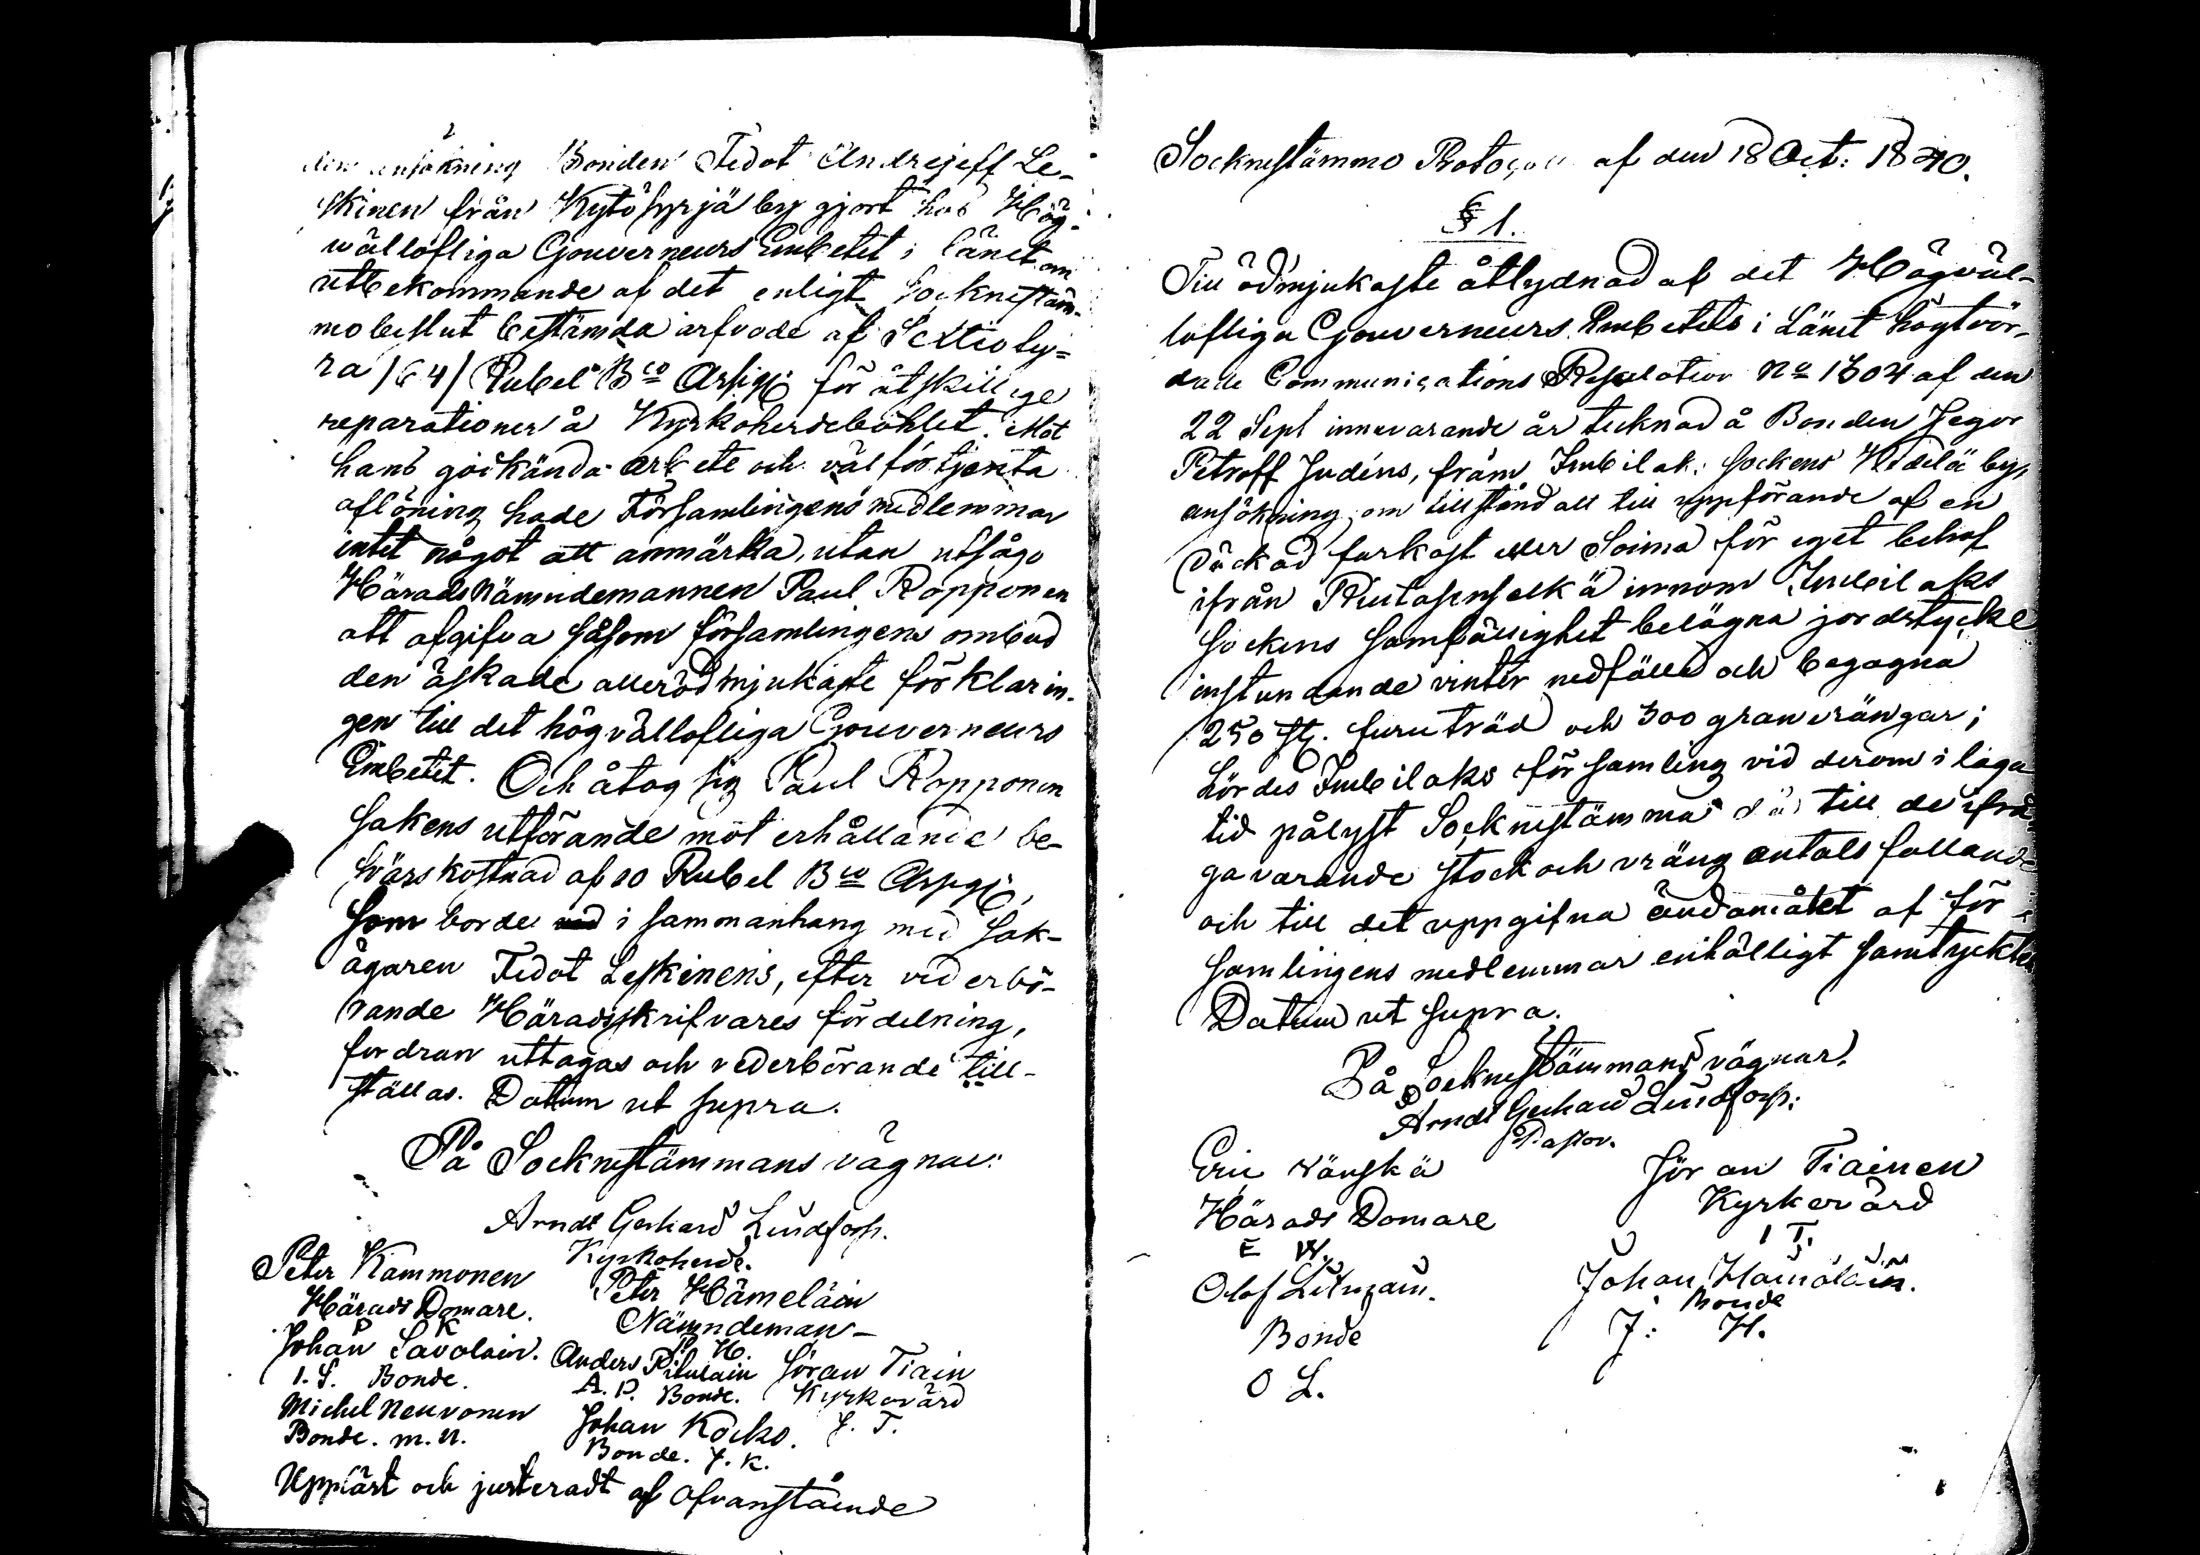 den ansökning Bonden Fedot Andrejeff Le-
skinen från Kytösyrjä by gjort hos Hög-
wällofliga Gouverneurs Embetet i länet om
utbekommande af det enligt Socknestäm-
mobeslut bestämda arfvode af Sextiofy-
ra /64/ Rubel Bco Assign för åtskillige
reparationer å Kyrkoherdebohlet. Mot
hans godkända arbete och välförtjenta
aflöning hade Församlingens medlemmar
intet något att anmärka, utan utsågo
Härads Nämndemannen Paul Ropponen
att afgifva såsom församlingens ombud
den äskade allerödmjukaste förklarin-
gen till det högvällofliga Gouverneurs
Embetet. Och åtog sig Paul Ropponen
sakens utförande mot erhållande be-
svärskostnad af 10 Rubel Bco Assign,
som borde i sammanhang med sak-
ägaren Fedot Leskinens, efter vederbö-
rande Häradsskrifvares fördelning,
fordran uttagas och vederbörande till-
ställas. Datum ut supra.
På Socknestämmans vägnar:
Arndt Gerhard Lindforss.
Kyrkoherde.
Peter Kammonen
Härads Domare.
P K
Peter Hämeläin
Nämndeman
P. H.
Johan Savolain.
I. S. Bonde.
Anders Pitulain
A. P. Bonde.
Jöran Tiain
Kyrkovärd
J. T.
Michel Neuvonen
Bonde. m. n.
Johan Kocko.
Bonde. J. K.
Uppläst och justeradt af Ofvanstående
Socknestämmo Protocoll af den 18 Oct: 1840.
§ 1.
Till ödmjukaste åtlydnad af det Högväl-
lofliga Gouverneurs Embetets i Länet högtvör-
dade Communications Resolution No 1304 af den
22 Sept innevarande år tecknad å Bonden Jegor
Petroff Judins, från Imbilax: sockens Kidelä by,
ansökning om tillstånd att till uppförande af en
däckad farkost eller Soima för eget behof
ifrån innom Imbilaks
sockens samfällighet belägna jordstycke
instundande vinter nedfälla och begagna
250 st. furuträd och 300 granvrängar;
hördes Imbilaks församling vid derom i laga
tid pålyst Socknestämma, där till de ifrå-
gavarande stock och vräng antals fallande
och till det uppgifna ändamålet af för
samlingens medlemmar enhälligt samtyckte
Datum ut supra.
På Socknestämmans vägnar.
Arndt Gerhard Lindforss:
Pastor.
Eric Wänskä
Härads Domare
E W.
Jöran Tiainen
Kyrkevärd
I T.
Olof
Bonde
O L.
Johan Hämäläin.
Bonde
J: H.